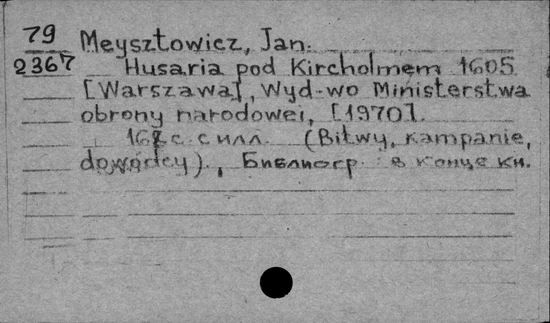 79
2367
Meysztowicz, Jan.
Husaria pod Kircholmem 1605
[Warszawa], Wyd-wo Ministerstwa
obrony narodowei, [1970].
с. с илл. (Bitwy, kampanie,
dowódcy)., Библиогр. в конце кн.